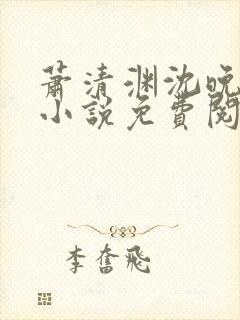 萧清渊沈晚
小说免費閱
李奮飛